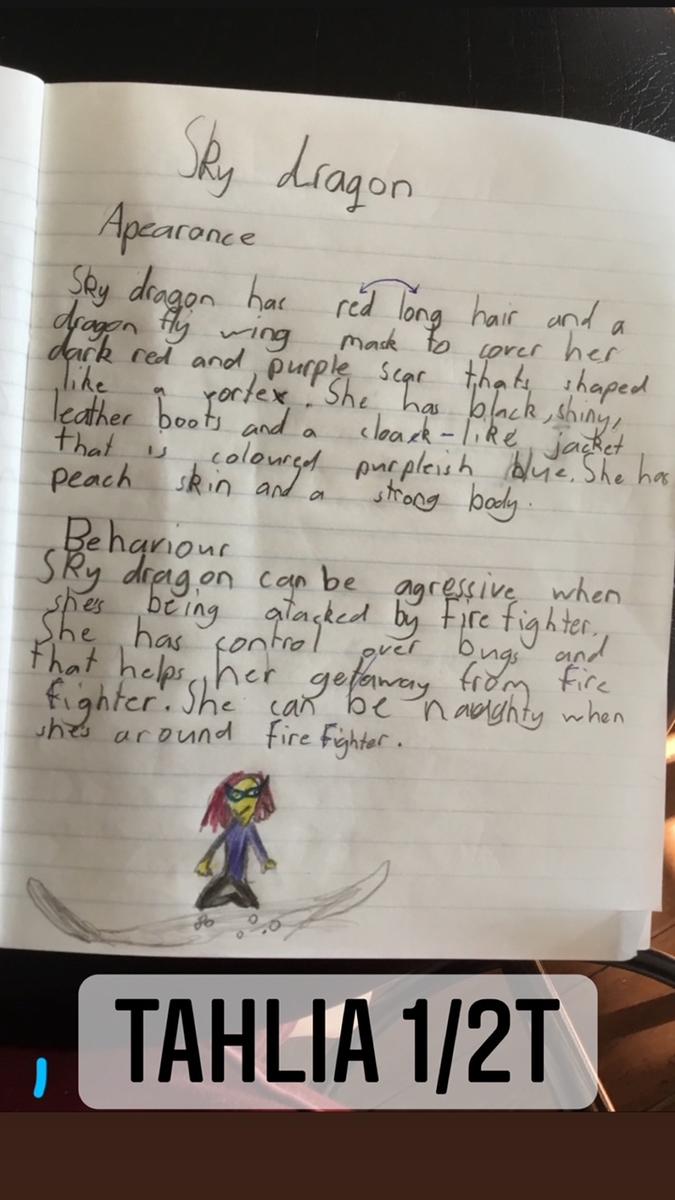 Sky dragon
Apearance
Sky dragon has red long hair and a
dragon fly wing mask to cover her
dark red and purple scar thats shaped
like a vortex. She has black, shiny,
leather boots and a cloack-like jacket
that is coloured purpleish blue. She has
peach skin and a strong body.
Behaviour
Sky dragon can be agressive when
she's being atacked by Fire fighter.
She has control over bugs and
that helps her getaway from Fire
fighter. She can be naughty when
she's around Fire Fighter.
TAHLIA 1/2T